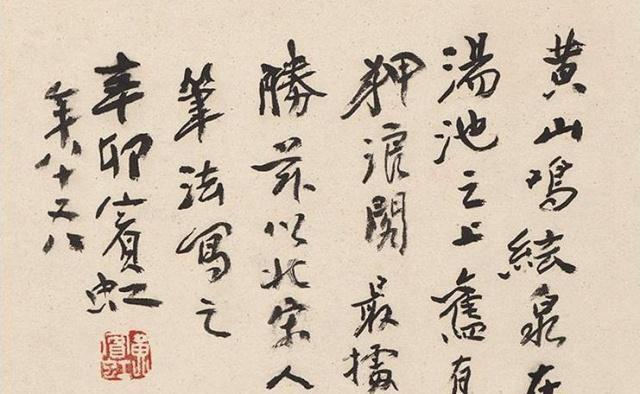 黃山鳴絃泉在
湯池之上舊有
狎浪閣最擅
勝茲以北宋人
筆法寫之
辛卯賓虹
年八十又八
黃賓虹